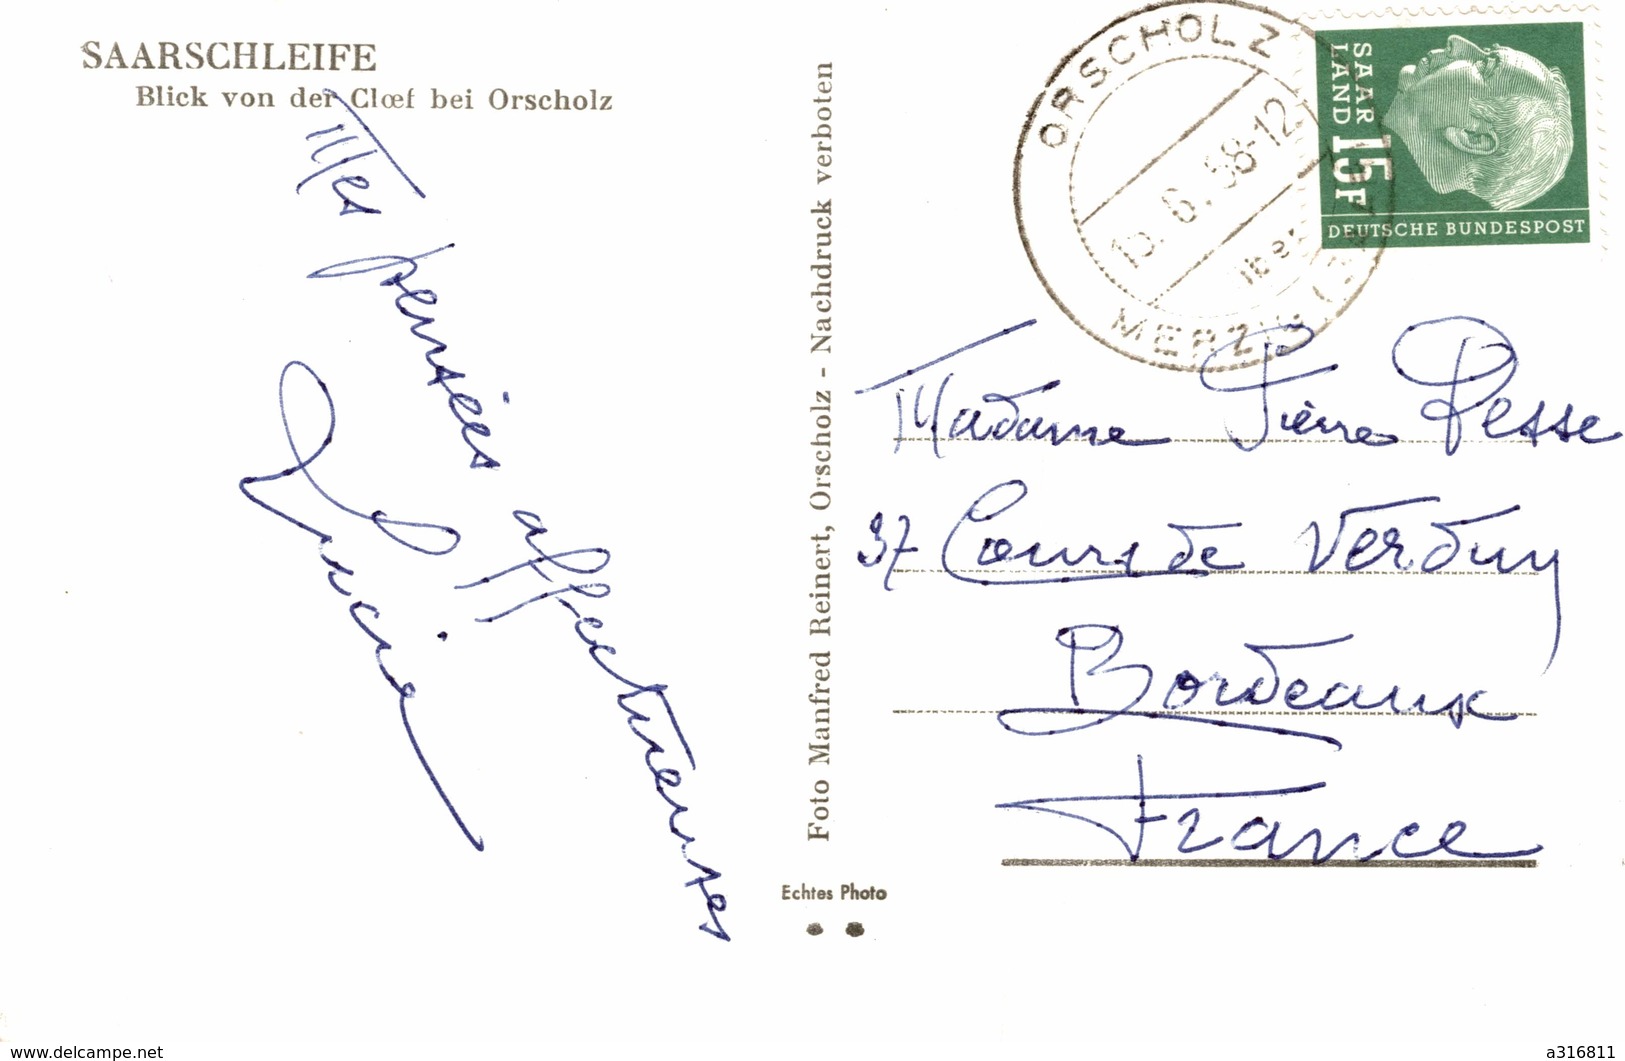 SAARSCHLEIFE
Blick von der Clœf bei Orscholz
Mes pensées affectueuses
Lucie
Foto Manfred Reinert, Orscholz - Nachdruck verboten
Echtes Photo
ORSCHOLZ
6.58-12
über
MERZIG (SAAR)
SAAR
LAND 15F
DEUTSCHE BUNDESPOST
Madame Pierre Pesse
37 Cours de Verdun
Bordeaux
France
delcampe.net
a316811